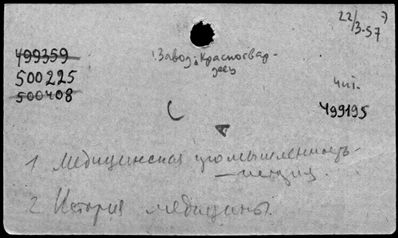 22/3-57
499359
500225
500408
Завод „Красногвар-
деец
чит.
499195
1 Медицинская промышленность-
-история.
2 История медицины.